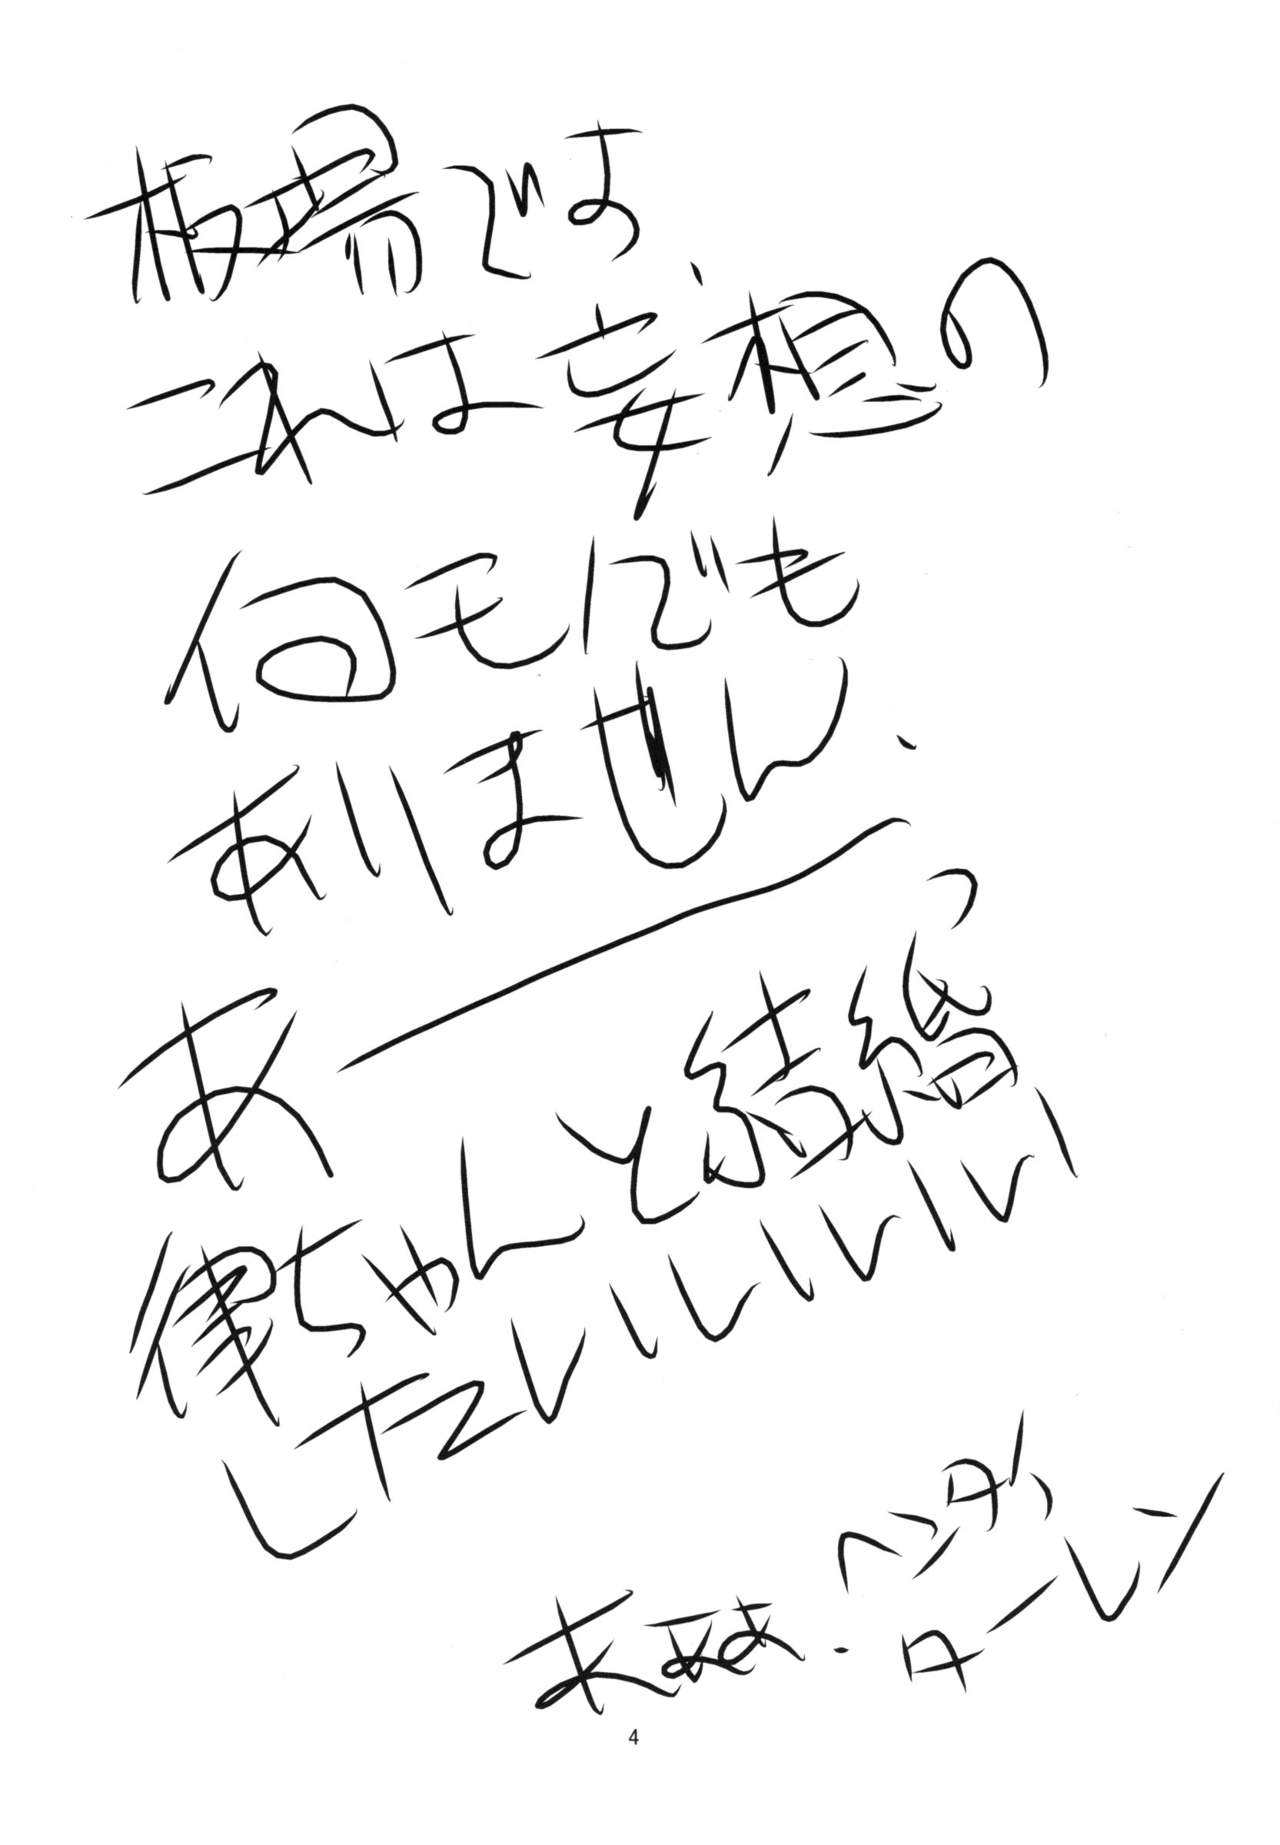 板場でよ、
これは妄想の
何モノでも
ありません、
あーっ
律ちゃんと結婚
したいいいいいいい
ヘンダ
ターレン
4